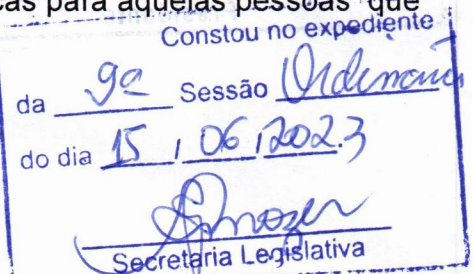 cas para aquelas pessoas que
Constou no expediente
da 9ª Sessão Ordinária
do dia 15 / 06 / 2023
Secretaria Legislativa